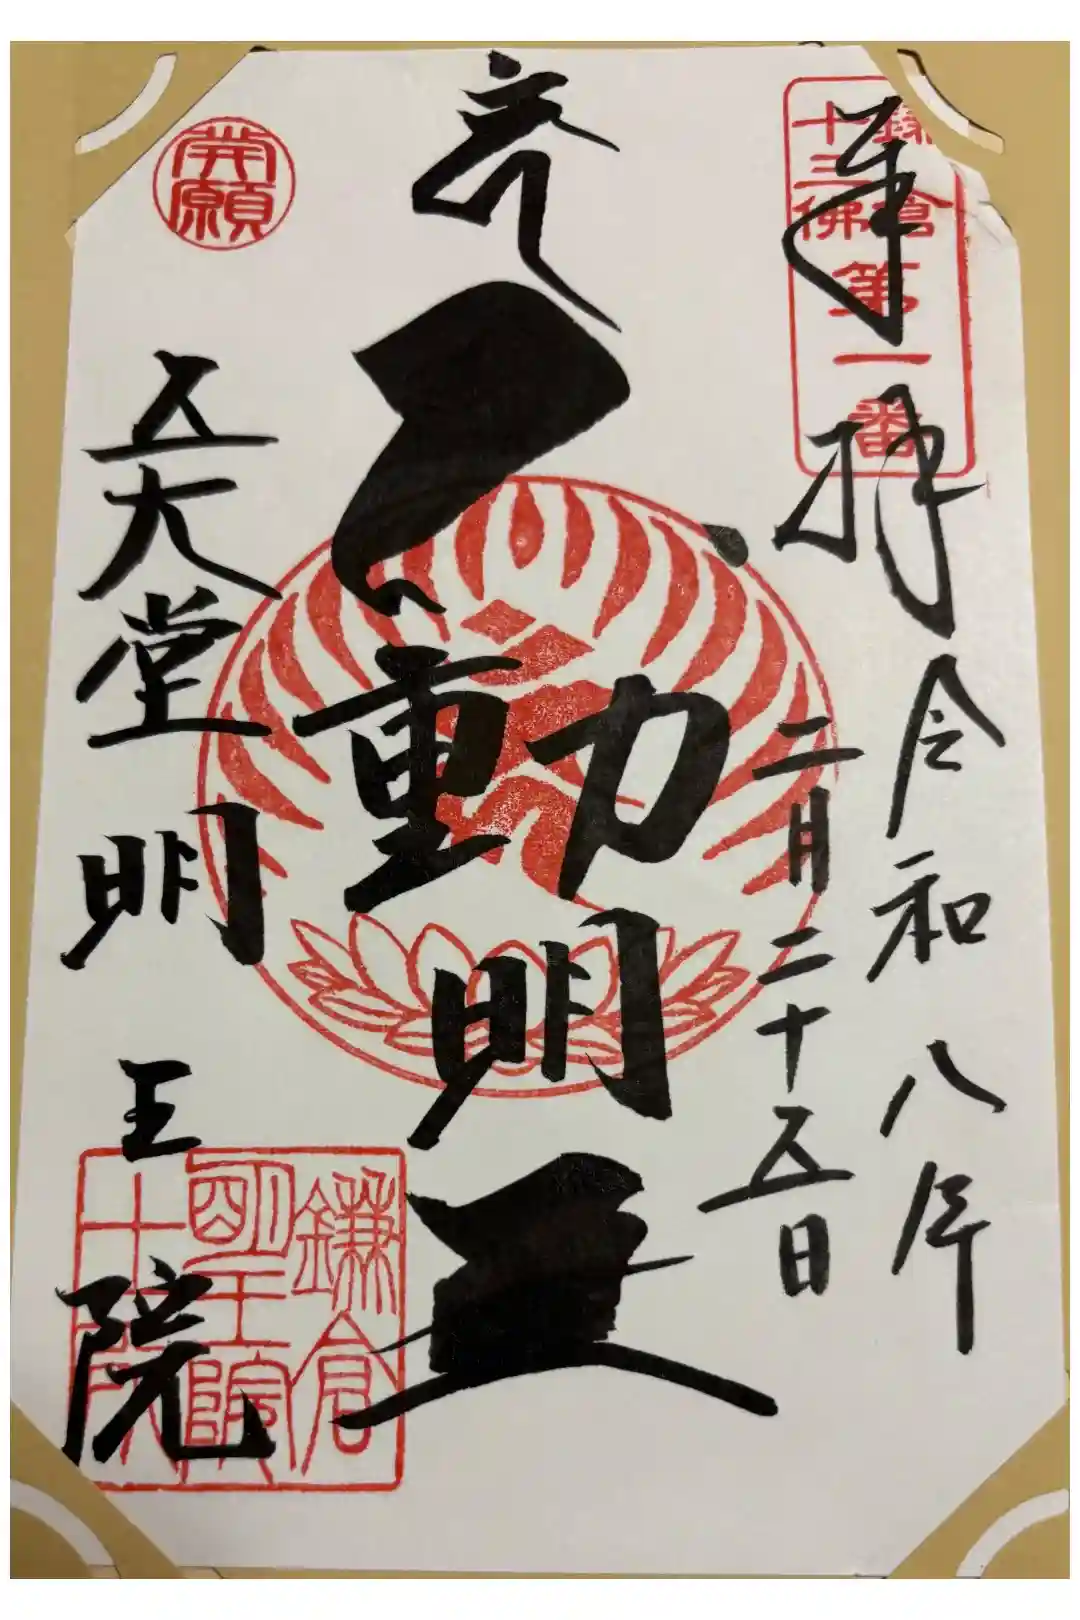 鎌倉
十三佛
第一番
奉拝
令和八年
二月二十五日
動明王
発願
五大堂
明王院
鎌倉
明王院